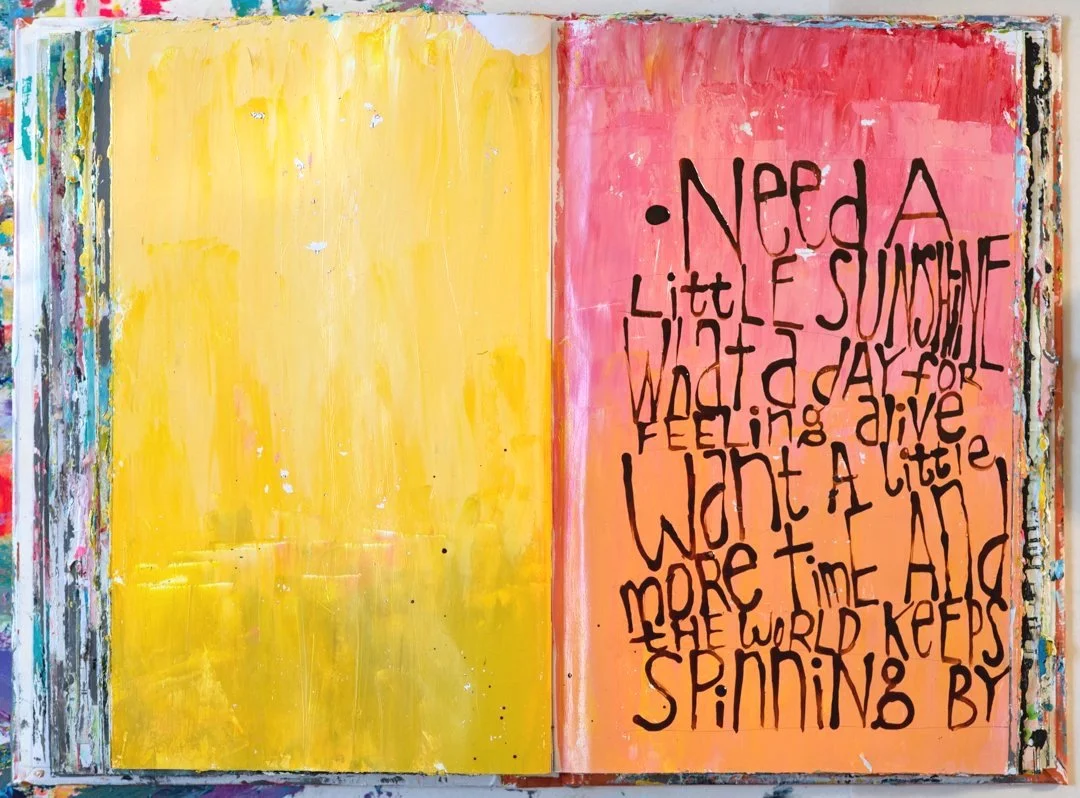 • Need A
LittLE SUNSHiNE
What a dAY foR
FEELing alive
Want A little
moRE timE ANd
tHE WoRLD KeEPS
SPinniNg BY